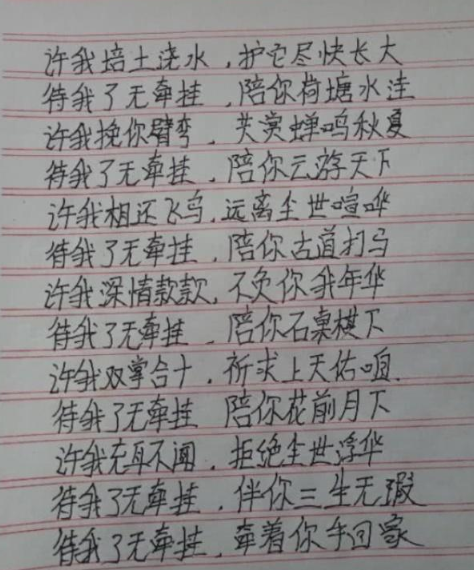 许我培土浇水，护它尽快长大
待我了无牵挂，陪你荷塘水洼
许我挽你臂弯，共赏蝉鸣秋夏
待我了无牵挂，陪你云游天下
许我相还飞鸟，远离尘世喧哗
待我了无牵挂，陪你古道打马
许我深情款款，不负你我年华
待我了无牵挂，陪你石桌棋下
许我双掌合十，祈求上天佑咱.
待我了无牵挂 陪你花前月下
许我充耳不闻，拒绝尘世浮华
待我了无牵挂，伴你三生无瑕
待我了无牵挂，牵着你手回家